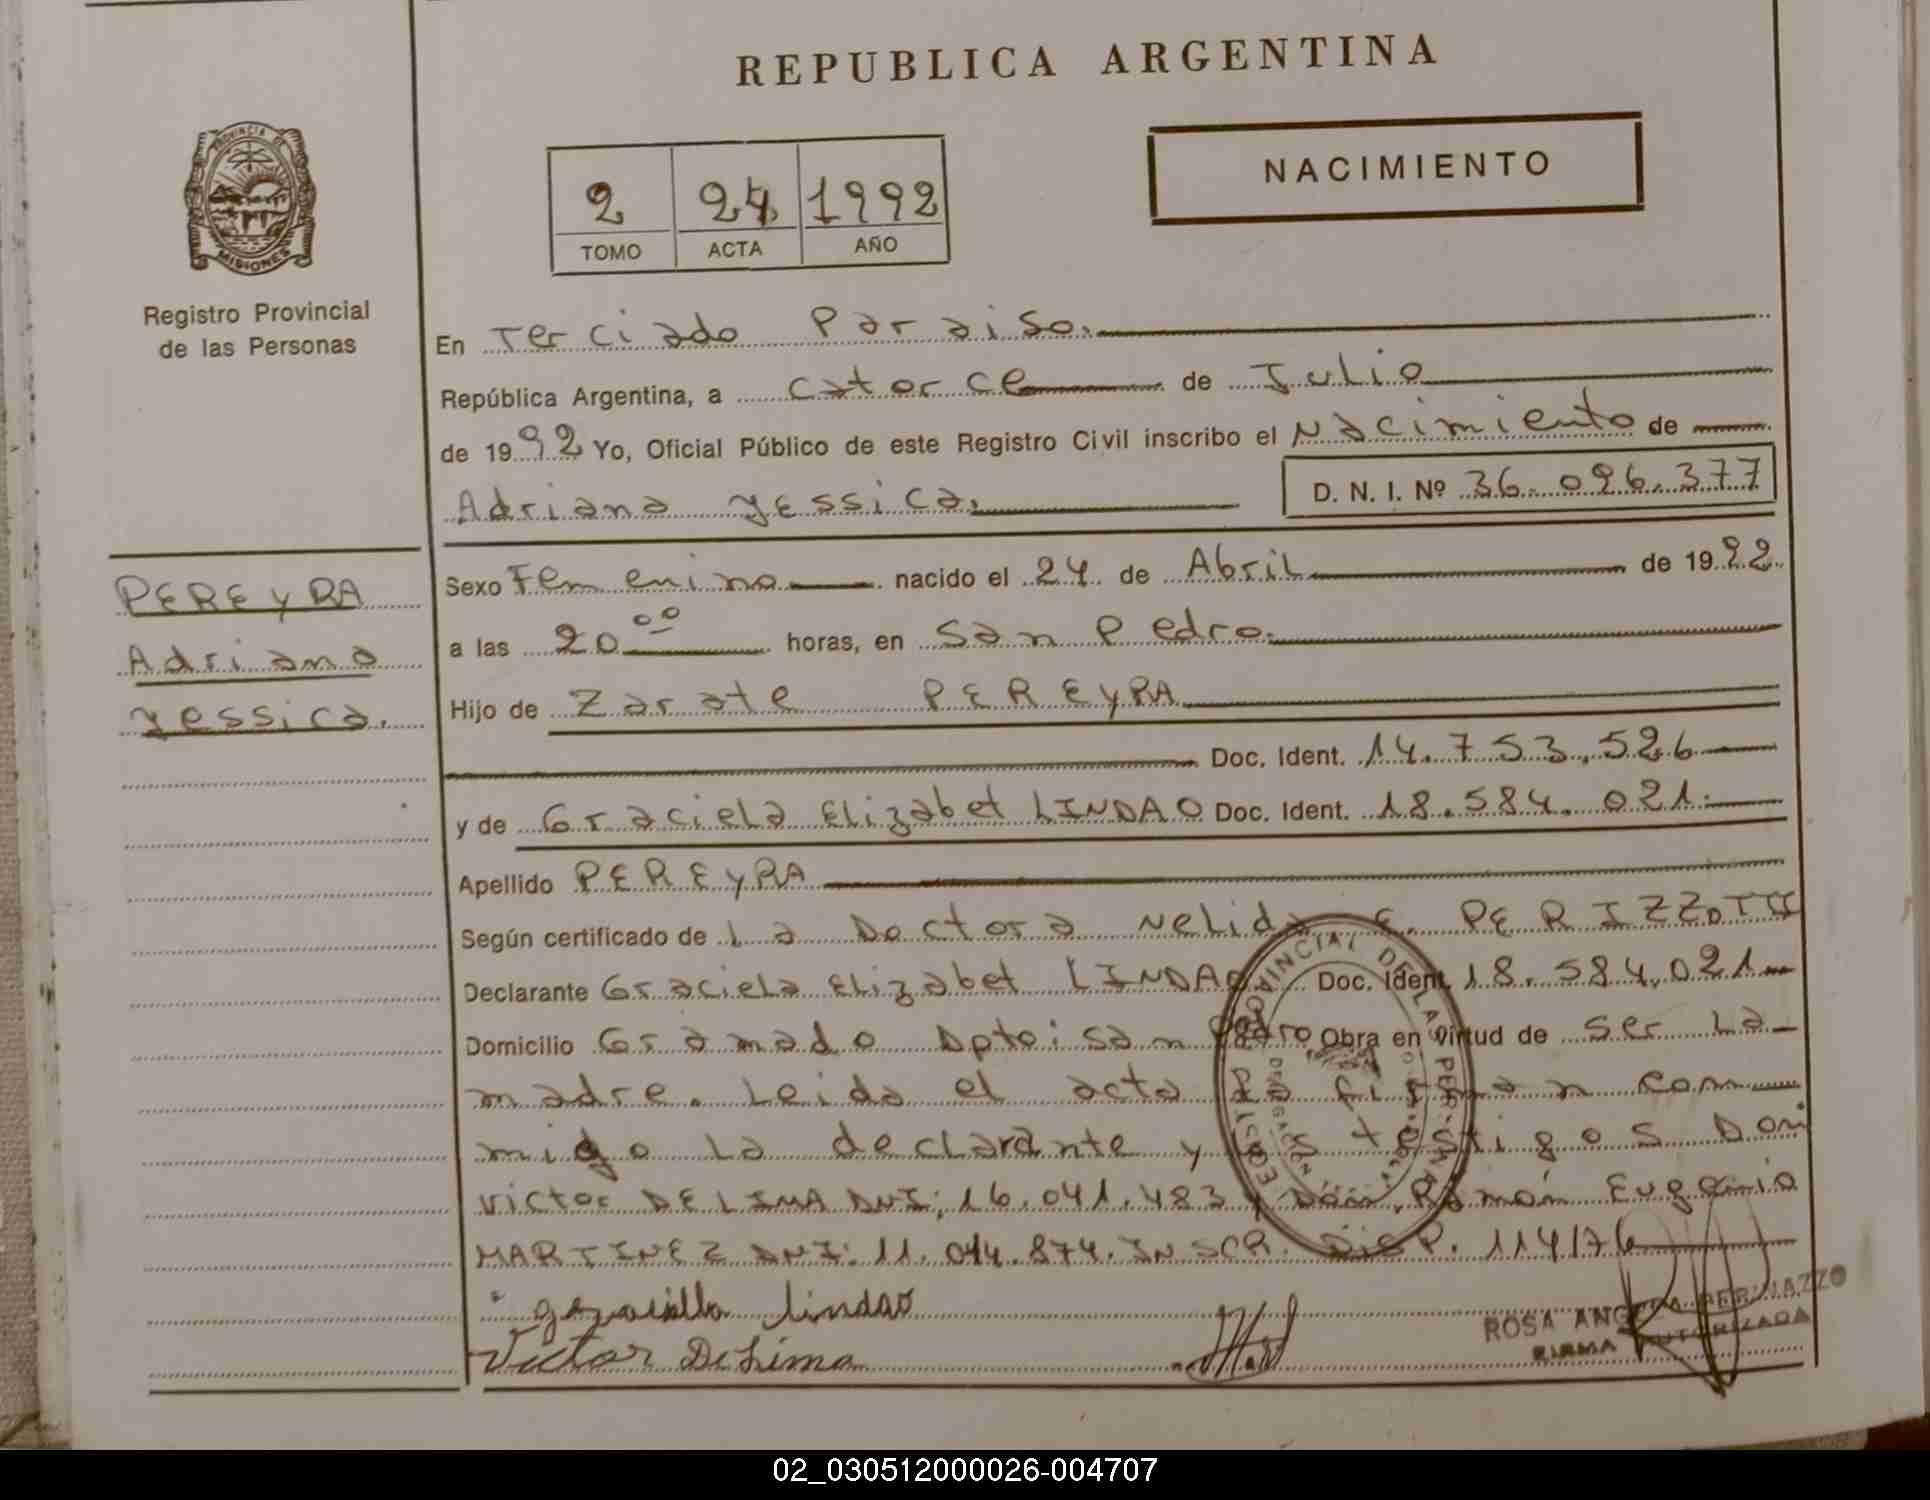 REPUBLICA ARGENTINA
NACIMIENTO
PROVINCIA DE
MISIONES
2 24 1992
TOMO ACTA AÑO
Registro Provincial
de las Personas
En Terciado Paraiso.
República Argentina, a catorce de Julio
de 1992 Yo, Oficial Público de este Registro Civil inscribo el Nacimiento de
Adriana Yessica. D. N. I. Nº 36.096.377
PEREYRA
Adriana
Yessica.
Sexo Femenino nacido el 24 de Abril de 1992.
a las 20 00 horas, en San Pedro.
Hijo de Zarate PEREYRA
Doc. Ident. 14.753.526
y de Graciela Elizabet LINDAO Doc. Ident. 18.584.021.
Apellido PEREYRA
Según certificado de La Doctora Nelida E.
Declarante Graciela Elizabet LINDAO Doc. Ident. 18.584.021
Domicilio Gramado Dpto: San Pedro Obra en virtud de ser La
madre. Leida el acta La firman con
migo La declarante y Los testigos Don
Victor DE LIMA DNI; 16.041.483 y Don, Ramón Eugenio
MARTINEZ DNI: 11.044.874. INSCR. DISP. 114/76
lindao
Victor De Lima
ROSA
FIRMA AUTORIZADA
02_030512000026-004707